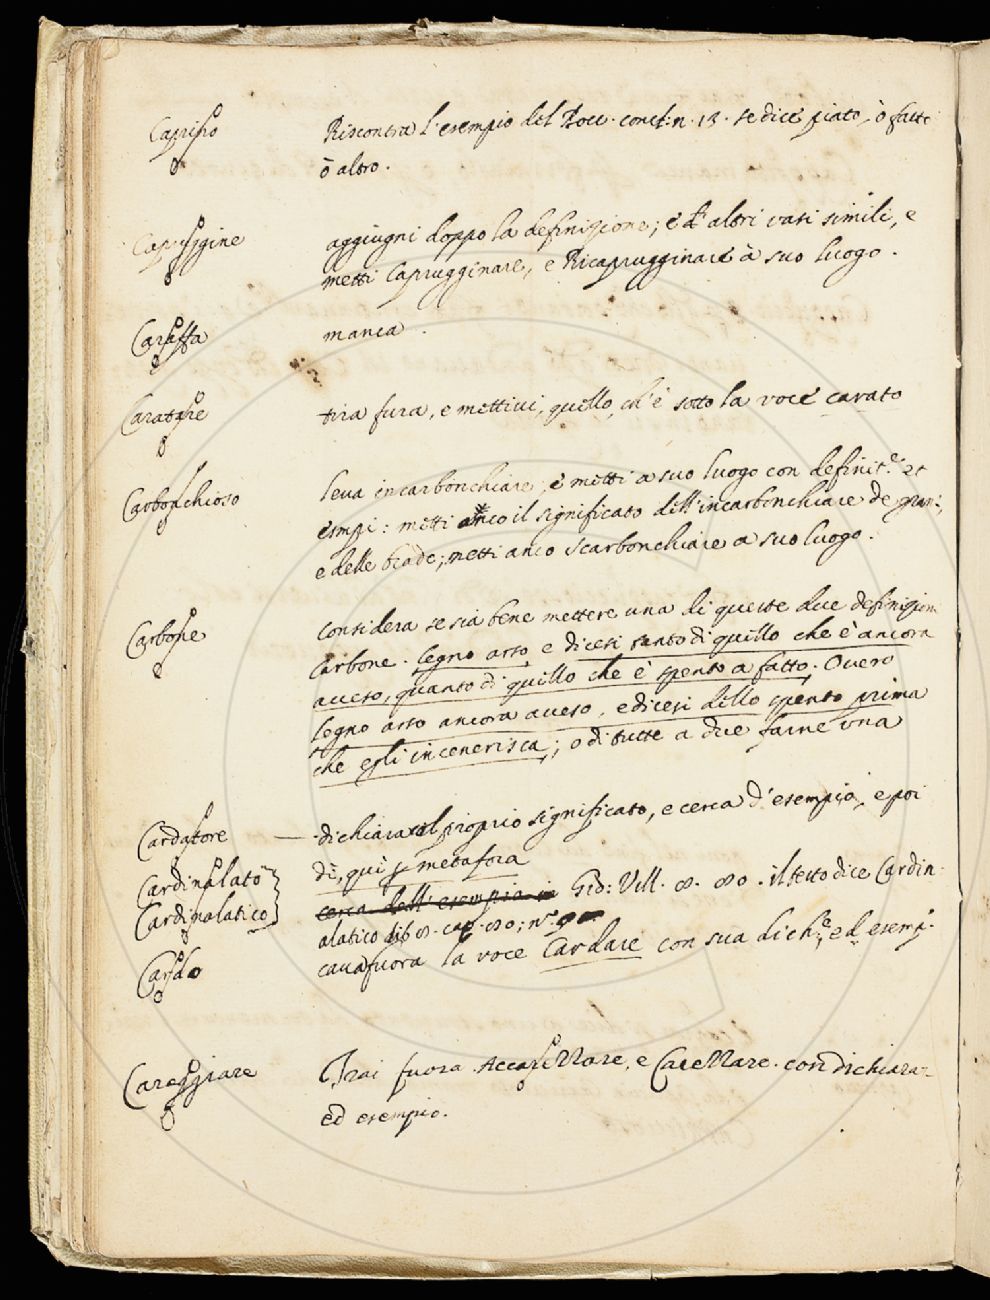 Capriccio Riscontra l'esempio del Bocc. concl. n. 13. se dice piato, ò fatto
ò altro.
Capruggine aggiugni doppo la definizione; e d'altri vasi simili, e
metti Caprugginare, e Ricaprugginare à suo luogo.
Caraffa manca.
Caratare tira fura, e mettivi, quello, ch'è sotto la voce carato
Carbonchioso leva incarbonchiare, e metti a suo luogo con definit.e et
esmpi: metti anco il significato dell'incarbonchiare de gran:,
e delle biade; metti anco scarbonchiare a suo luogo.
Carbone Considera se sia bene mettere una di queste due definizioni
Carbone. legno arso, e dicesi tanto di quello che è ancora
acceso, quanto di quello che è spento a fatto. Overo
legno arso ancora acceso, e dicesi dello spento prima
che egli incenerisca; o di tutte a due farne una
Cardatore — dichiara il proprio significato, e cerca d'esempio, e poi
dì, quì p metafora
Cardinalato cerca dell'esempio in Gio: Vill. 8. 80. il testo dice Cardin-
Cardinalatico alatico lib 8. cap. 80; n.
Cardo cava fuora la voce Cardare con sua dich.e, ed esemp.
Careggiare Trai fuora Accarezzare, e Carezzare. con dichiaraz
ed esempio.